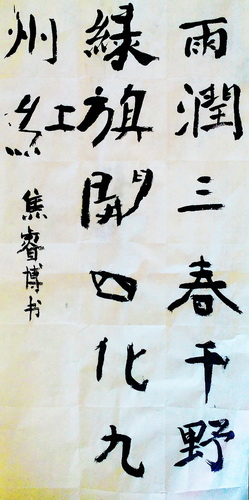 雨潤三春千野
緑旗開四化九
州紅
焦睿博书